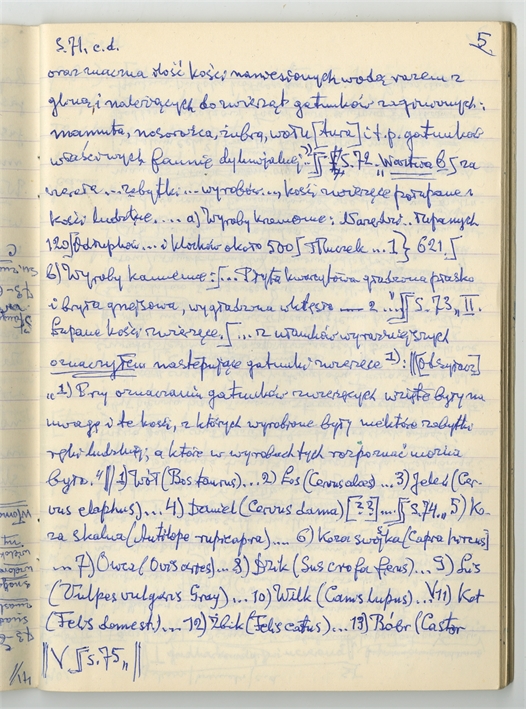 S.71, c.d. 5.
oraz znaczna ilość kości naniesionych wodą razem z
gliną, i należących do zwierząt gatunków zaginionych:
mamuta, nosorożca, żubra, wołu [tura] i t.p. gatunków
właściwych faunie dyluwjalnej S.72 „Warstwa 6 za
wiera ... zabytki ... wyrobów ..., kości zwierzęce połupane i
kości ludzkie. ... a) Wyroby kamienne: Narzędzi .. łupanych
120 [Odłupków ... i klocków około 500 [Tłuczek ... 1} 621.
b) Wyroby kamienne: [... Płyta kwarcytowa gładzona płasko
i bryła gnejsowa, wygładzona wklęsło — 2 ... S.73 „II.
Łupane kości zwierzęce. [... z ułamków wyraźniejszych
oznaczyłem następujące gatunki zwierzęce 1): [Odsyłacz]
„1) Przy oznaczaniu gatunków zwierzęcych wzięte były na
uwagę i te kości, z których wyrobione były niektóre zabytki
ręki ludzkiej, a które w wyrobach tych rozpoznać można
było." 1) Wół (Bos taurus) ... 2) Łoś (Cervus alces) ... 3) Jeleń (Cer-
vus elaphus) ... 4) Daniel (Cervus dama) [??] ... S.74 „ 5) Ko-
za skalna (Antilope rupicapra) .... 6) Koza swojska (Capra hircus)
... 7) Owca (Ovis aries) ... 8) Dzik (Sus crofa ferus) ... 9) Lis
(Vulpes vulgaris Gray) ... 10) Wilk (Canis lupus) ... 11) Kot
(Felis domest.) ... 12) Żbik (Felis catus) ... 13) Bóbr (Castor
S.75 „